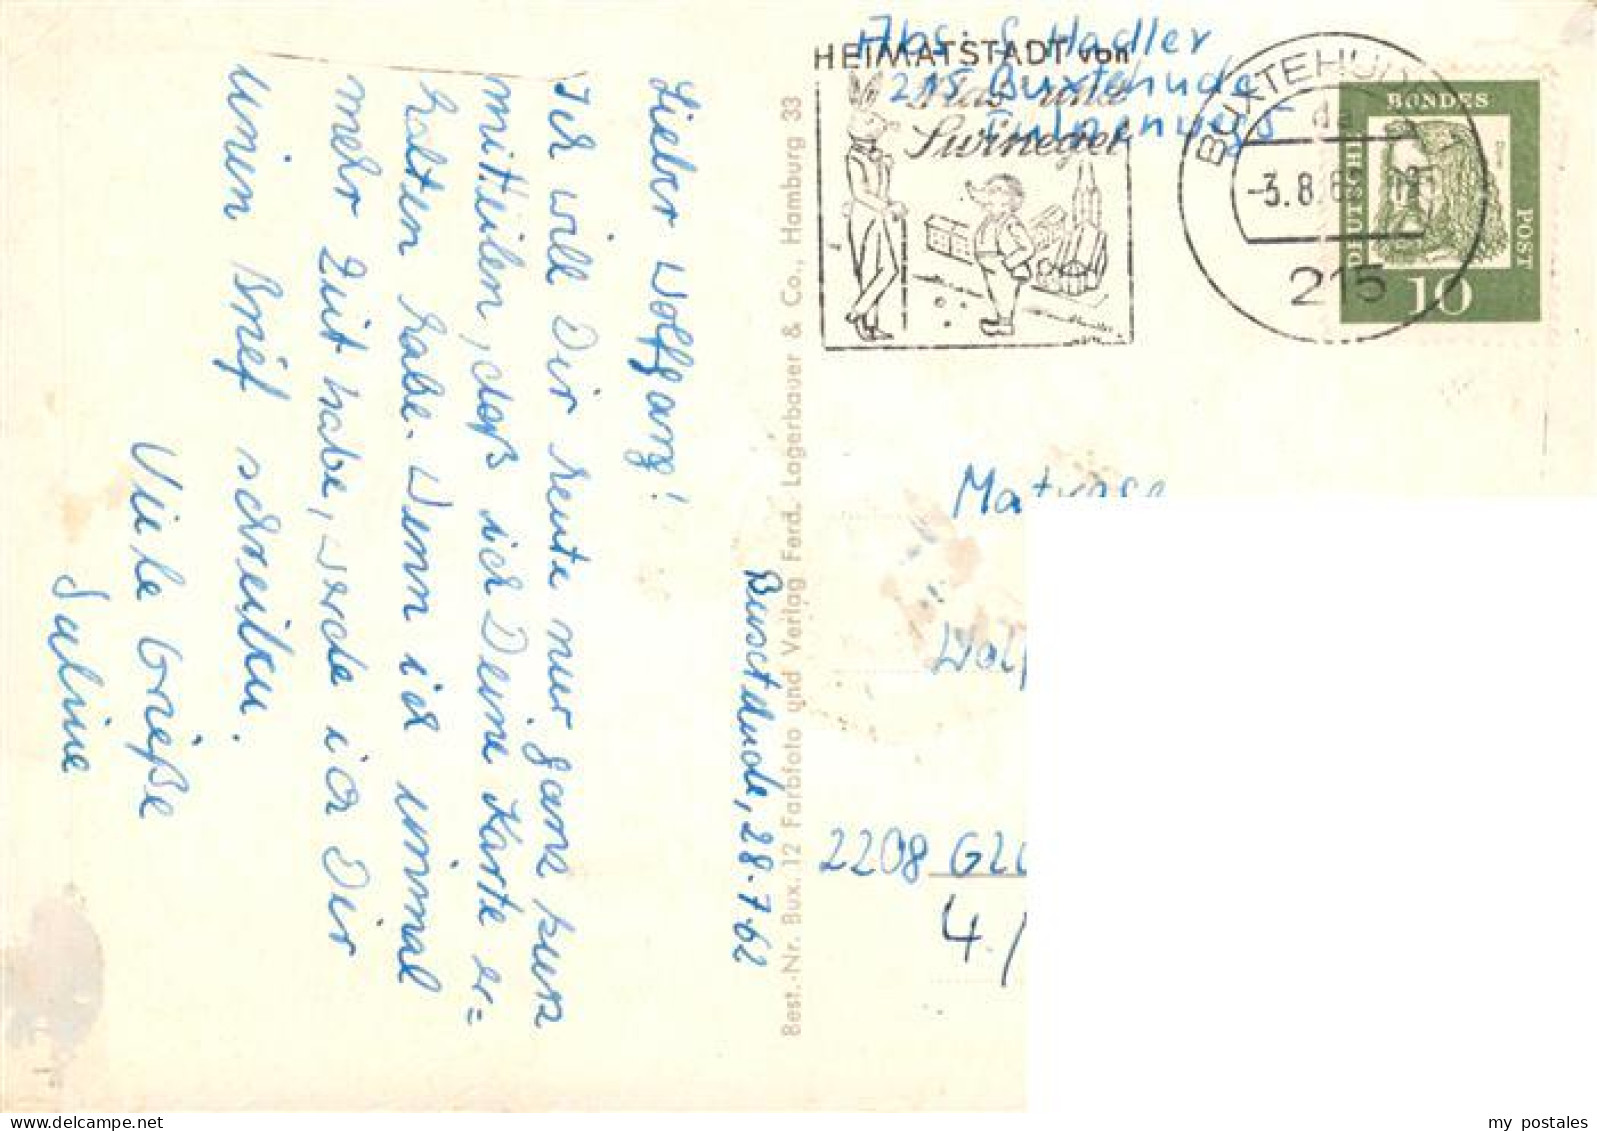 Buxtehude, 28.7.62
Lieber Wolfgang!
Ich will Dir heute nur ganz kurz
mitteilen, daß ich Deine Karte er=
halten habe. Wenn ich einmal
mehr Zeit habe, werde ich Dir
einen Brief schreiben.
Viele Grüße
Sabine
Best.-Nr. Bux. 12 Farbfoto und Verlag Ferd. Lagerbauer & Co., Hamburg 33
Abs. S. Hadler
215 Buxtehude
HEIMATSTADT von
Has und
Swinegel
BUXTEHUDE 1
-3.8.6
215
BUNDES
DEUTSCHE
POST
10
Matrose
Wolf
2208 Glü
4./
my postales